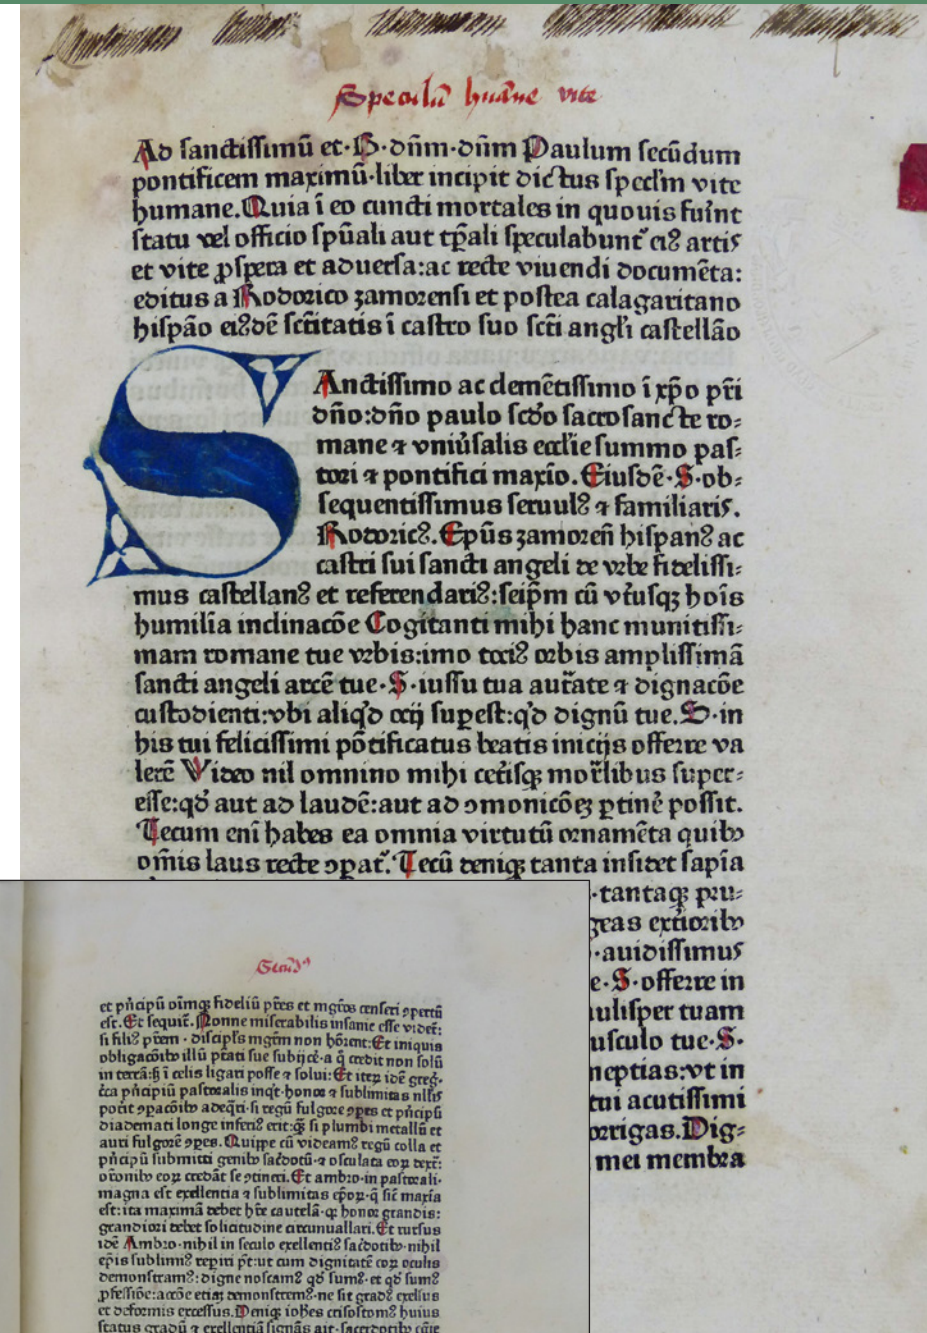 Speculū humane vite
Ad sanctissimū et·B·dn̄m·dn̄m Paulum secūdum
pontificem maximū·liber incipit dictus specl'm vite
humane.Quia ī eo cuncti mortales in quouis fuīnt
statu vel officio spūali aut tꝑali speculabunt᷑ eiꝰ artis
et vite ꝓspera et aduersa:ac recte viuendi documēta:
editus a Rodorico zamorensi et postea calagaritano
hispāo eiꝰdē sctītatis ī castro suo scti angl'i castellāo
SAnctissimo ac clemētissimo ī xp̄o pr̄i
dn̄o:dn̄o paulo scd̄o sacrosancte ro⸗
mane ⁊ vniu᷑salis eccl'ie summo pas⸗
tori ⁊ pontifici maxīo.Eiusdē·S·ob⸗
sequentissimus seruulꝰ ⁊ familiaris.
Rodoricꝰ.Ep̄us zamoren̄ hispanꝰ ac
castri sui sancti angeli de vrbe fidelissi⸗
mus castellanꝰ et referendariꝰ:seip̄m cū vt᷑usqꝫ hoīs
humilīa inclinacōe Cogitanti mihi hanc munitissi⸗
mam romane tue vrbis:imo tociꝰ orbis amplissimā
sancti angeli arcē tue·S·iussu tua auc̄tate ⁊ dignacōe
custodienti:vbi aliqd̓ ocij suꝑest:qd̓ dignū tue.S·in
his tui felicissimi pōtificatus beatis inicijs offerre va
lerē Video nil omnino mihi cet᷑isqꝫ mort᷑libus super⸗
esse:qd̓ aut ad laudē:aut ad ꝯmonicōeꝫ ꝑtinē possit.
Tecum enī habes ea omnia virtutū ornamēta quibꝰ
om̄is laus recte ꝯpat᷑.Tecū deniqꝫ tanta insidet sapīa
·tantaqꝫ pru⸗
geas exterioribꝰ
·auidissimus
e·S·offerre in
aulisper tuam
usculo tue·S·
neptias:vt in
tui acutissimi
orrigas.Dig⸗
mei membra
Secūdꝰ
et pn̄cipū oīmqꝫ fideliū pr̄es et mgr̄os censeri ꝯpertū
est.Et sequit᷑.Nonne miserabilis insanie esse videt᷑:
si filiꝰ pr̄em·discipl's mgr̄m non hōrent:Et iniquis
obligacōibꝰ illū ptāti sue subijcē·a q̄ credit non solū
in terrā:sꝫ ī celis ligari posse ⁊ solui:Et iteꝝ idē greg̓·
ca pn̄cipiū pastoralis inqt·honor ⁊ sublimitas
potīt ꝯpacōibꝰ adeq̄ri·si regū fulgore ꝯꝑes et pn̄cipū
diademati longe inferiꝰ erit:q̄ꝫ si plumbi metallū et
auri fulgorē ꝯꝑes.Quippe cū videamꝰ regū colla et
pn̄cipū submitti genibꝰ sacdotū·⁊ osculata eoꝝ dext᷑:
orōnibꝰ eoꝝ credāt se ꝯtineri.Et ambro·in pastorali·
magna est excellentia ⁊ sublimitas ep̄oꝝ·q̄ sic̄ maxīa
est:ita maximā debet hr̄e cautelā·qꝫ honor grandis:
grandiori debet solicitudine circunuallari.Et rursus
idē Ambro·nihil in seculo excellentiꝰ sacdotibꝰ·nihil
ep̄is sublimiꝰ reperiri pt̄:ut cum dignitatē eoꝝ oculis
demonstramꝰ:digne noscamꝰ qd̓ sumꝰ·et qd̓ sumꝰ
ꝓfessiōe:accōe etiaꝫ demonstremꝰ·ne sit gradꝰ exelsus
et deformis excessus.Deniqꝫ ioh̄es crisostomꝰ huius
status gradū ⁊ excellentiā signās ait·sacerdotibꝰ